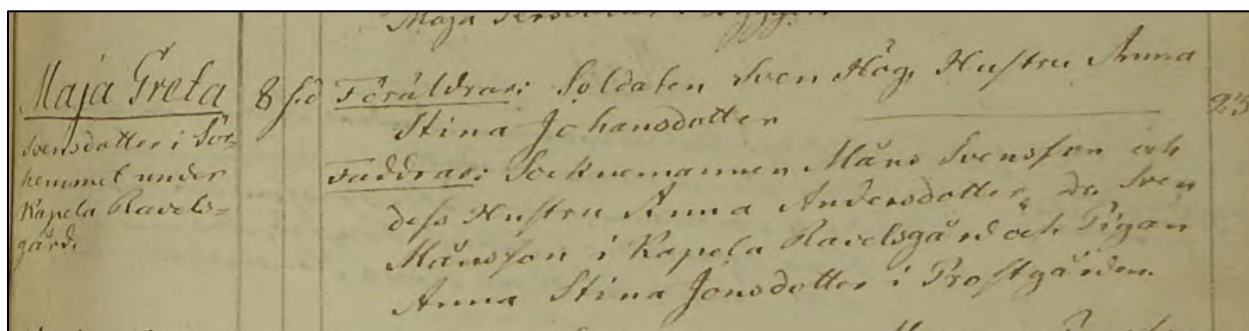 Maja Persdotter i
Maja Greta
Svensdotter i Sör-
hemmet under
Kapela Ravels-
gård.
8 f.d
Föräldrar: Soldaten Sven Hög, Hustru Anna
Stina Johansdotter
Faddrar: Socknemannen Måns Svensson och
dess Hustru Anna Andersdotter, Dr. Sven
Månsson i Kapela Ravelsgård och Pigan
Anna Stina Jonsdotter i Prostgården.
23